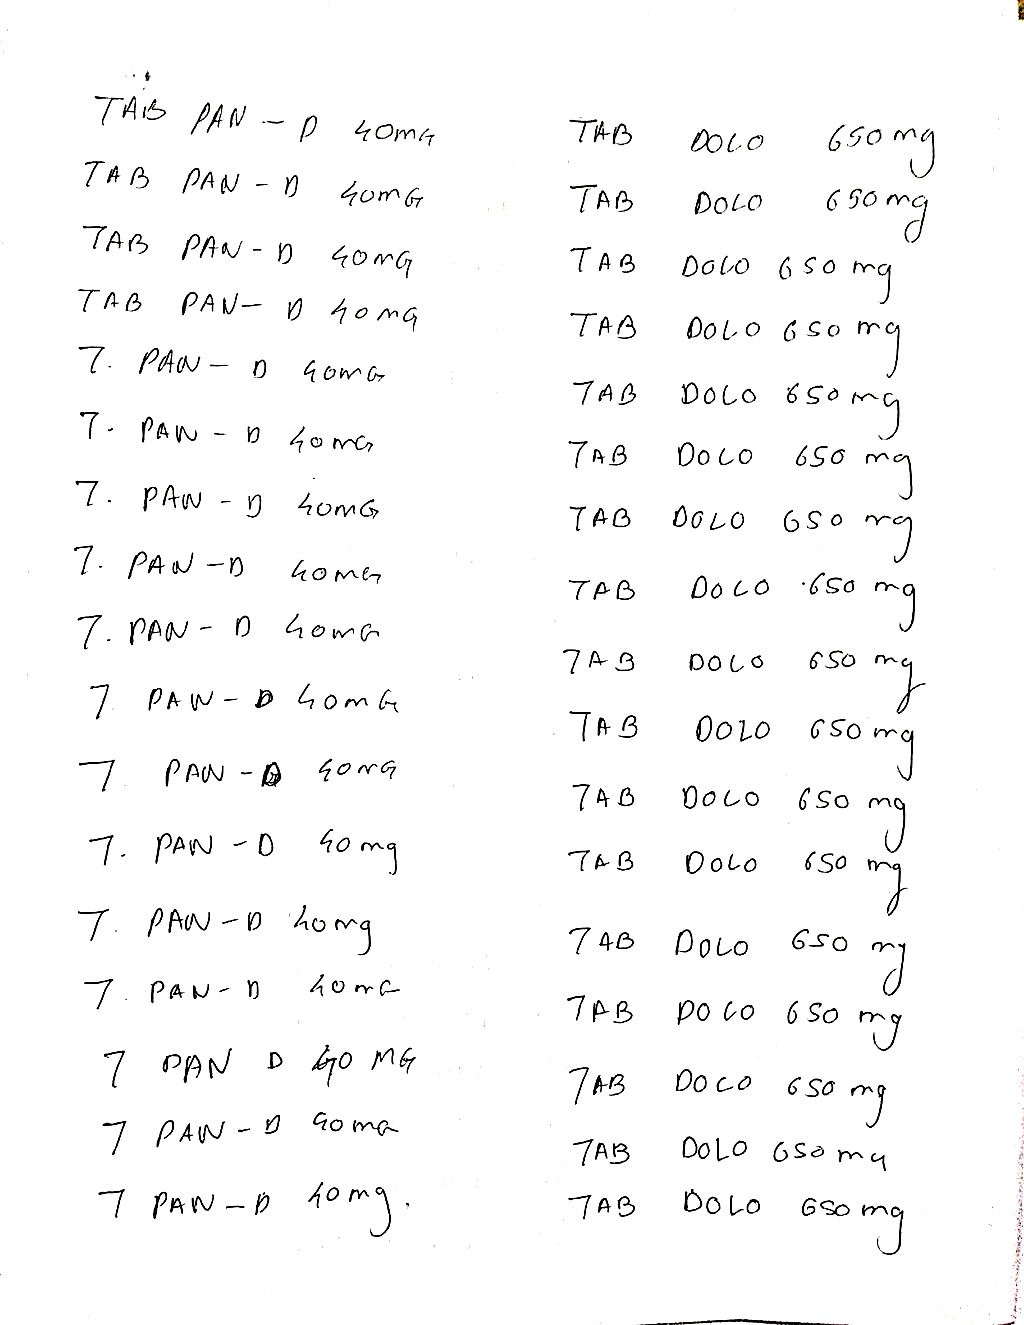 TAB PAN - D 40MG
TAB PAN - D 40MG
TAB PAN - D 40MG
TAB PAN - D 40MG
T. PAN - D 40MG
T. PAN - D 40MG
T. PAN - D 40MG
T. PAN - D 40MG
T. PAN - D 40MG
T PAN - D 40MG
T PAN - D 40MG
T. PAN - D 40mg
T. PAN - D 40mg
T. PAN - D 40MG
T PAN D 40 MG
T PAN - D 40MG
T PAN - D 40mg.
TAB DOLO 650 mg
TAB DOLO 650 mg
TAB DOLO 650 mg
TAB DOLO 650 mg
TAB DOLO 650 mg
TAB DOLO 650 mg
TAB DOLO 650 mg
TAB DOLO 650 mg
TAB DOLO 650 mg
TAB DOLO 650 mg
TAB DOLO 650 mg
TAB DOLO 650 mg
TAB DOLO 650 mg
TAB DOLO 650 mg
TAB DOLO 650 mg
TAB DOLO 650 mg
TAB DOLO 650 mg